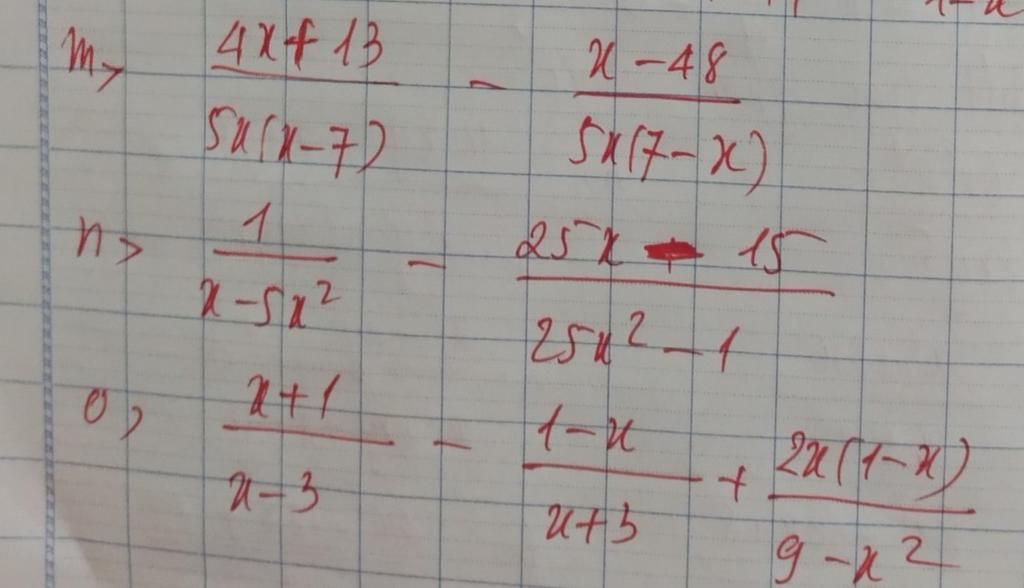 m, (4x+13)/(5x(x-7)) - (x-48)/(5x(7-x))
n, 1/(x-5x²) - (25x - 15)/(25x²-1)
o, (x+1)/(x-3) - (1-x)/(x+3) + (2x(1-x))/(9-x²)